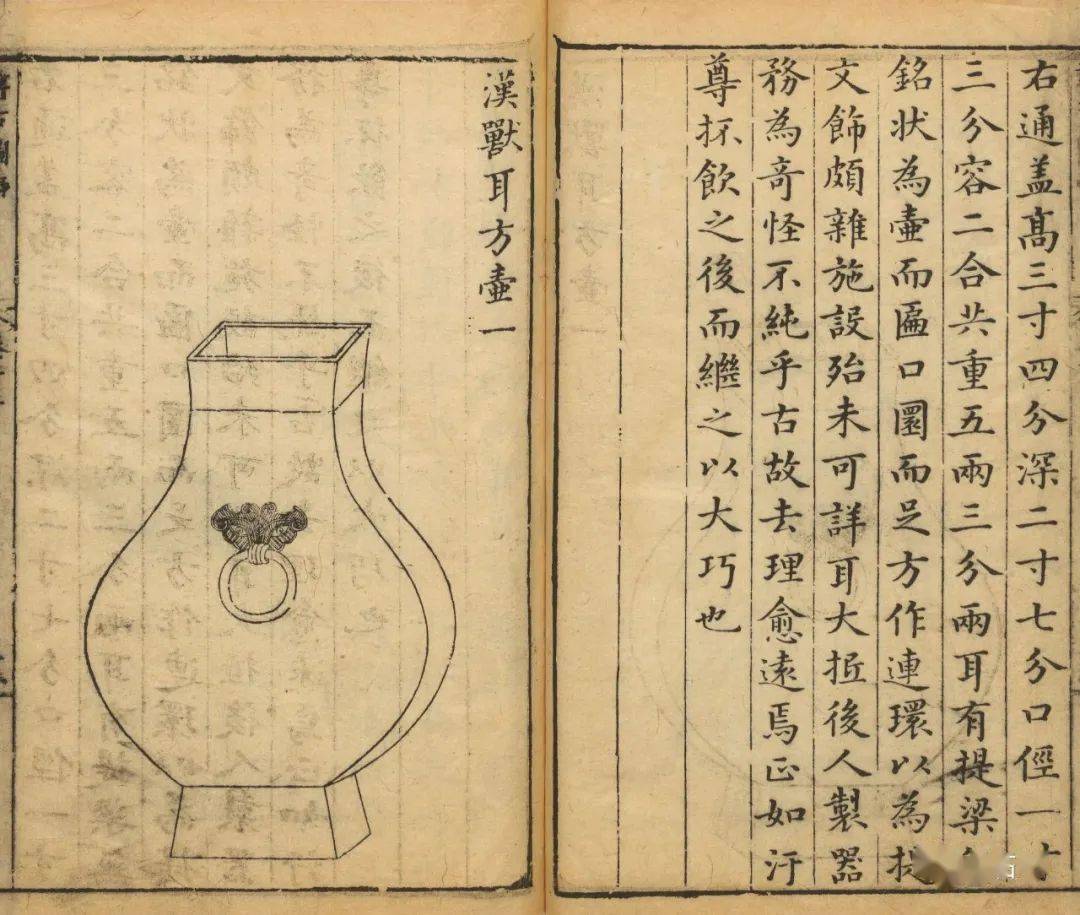 右通盖髙三寸四分深二寸七分口俓一寸
三分容二合共重五兩三分兩耳有提梁
銘状為壷而匾口圜而足方作連環以為提
文飾頗雜施設殆未可詳耳大抵後人製器
務為竒怪不純乎古故去理愈遠焉正如汙
尊抔飲之後而繼之以大巧也
漢獸耳方壷一